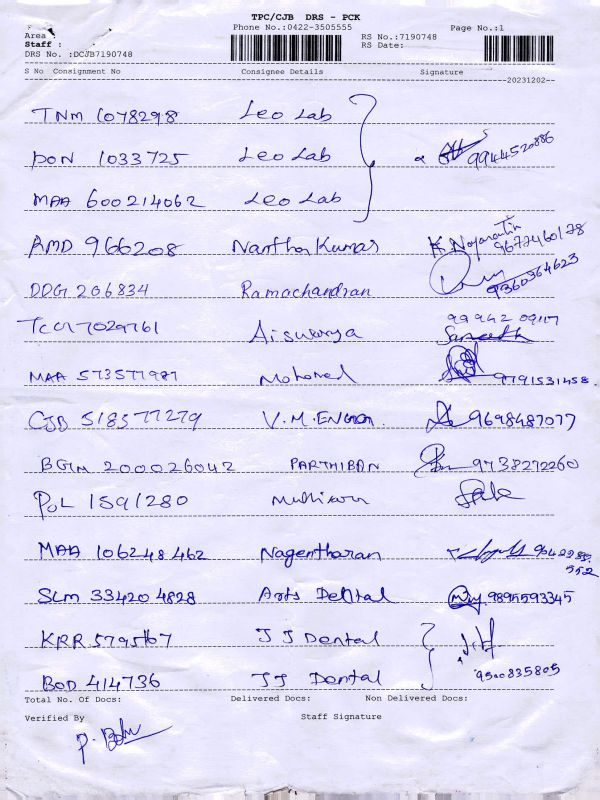 TPC/CJB DRS - PCK
Phone No.:0422-3505555
Page No.:1
Area :
RS No.:7190748
Staff :
RS Date:
DRS No. :DCJB7190748
S No Consignment No Consignee Details Signature
20231202
TNM 1078298 Leo Lab
PON 1033725 Leo Lab 9944520886
MAA 600214062 Leo Lab
AMD 966208 Nantha Kumar 9677460178
DDG 206834 Ramachandran 9360364623
Aiswarya
MAA 573577987 Mohamed 9791531458
CJB 518577279 V.M. 9698487077
BGM 200026042 PARTHIBAN 9738272260
POL 1591280
MAA 106248462 Nagentharan
SLM 334204828 Arts Dental 9895593345
KRR JJ Dental
BOD 414736 JJ Dental 9500835805
Total No. Of Docs: Delivered Docs: Non Delivered Docs:
Verified By Staff Signature